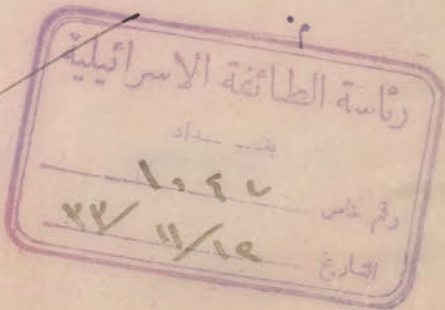 رئاسة الطائفة الاسرائيلية
بغـــداد
رقم خاص ١٠٤٧
التاريخ ١٢/١١/٣٣